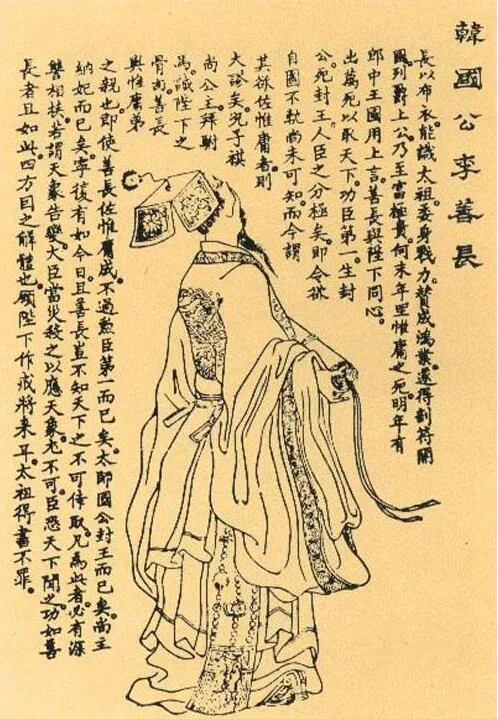 韓國公李善長
長以布衣能識太祖。委身戰力。贊成鴻業。遂得剖符開
國。列爵上公。乃至富極貴。何末年坐惟庸之死。明年有
郎中王國用上言。善長與陛下同心。
出萬死以取天下。功臣第一。生封
公。死封王。人臣之分極矣。即令欲
自圖不軌。尚未可知。而今謂
其欲佐惟庸者。則
大謬矣。況子祺
尚公主。拜駙
馬。誠陛下之
骨肉。善長
與惟庸第
之親也。即使善長佐惟庸成。不過勳臣第一而已矣。太師國公封王而已矣。尚主
納妃而已矣。寧復有如今日。且善長豈不知天下之不可倖取。凡為此者。必有深
讐相扶。若謂天象告變。大臣當災。殺之以應天象。尤不可。臣恐天下聞之。功如善
長者且如此。四方因之解體也。願陛下作戒將來耳。太祖得書不罪。